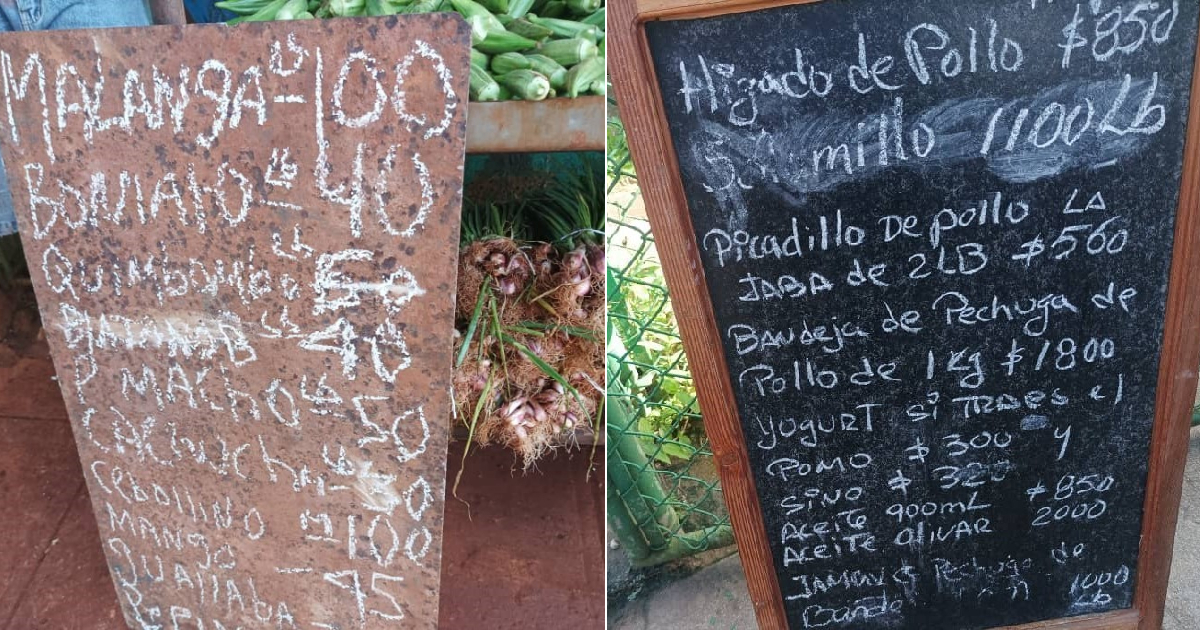 MALANGA lb - 100
BONIATO lb - 40
QUIMBOMBO lb
lb 40
P MACHO lb 50
CACHUCHA lb
CEBOLLINO 100
MANGO
GUAIIABA - 45
Higado de Pollo $850
millo 1100 Lb
Picadillo De pollo LA
JABA de 2LB $560
Bandeja de Pechuga de
Pollo de 1Kg $1800
YOGURT si TRAES el
POMO $300 y
SINO $320
ACEITE 900mL $850
ACEITE OliVAR 2000
JAMON Pechuga de
1000
Lb